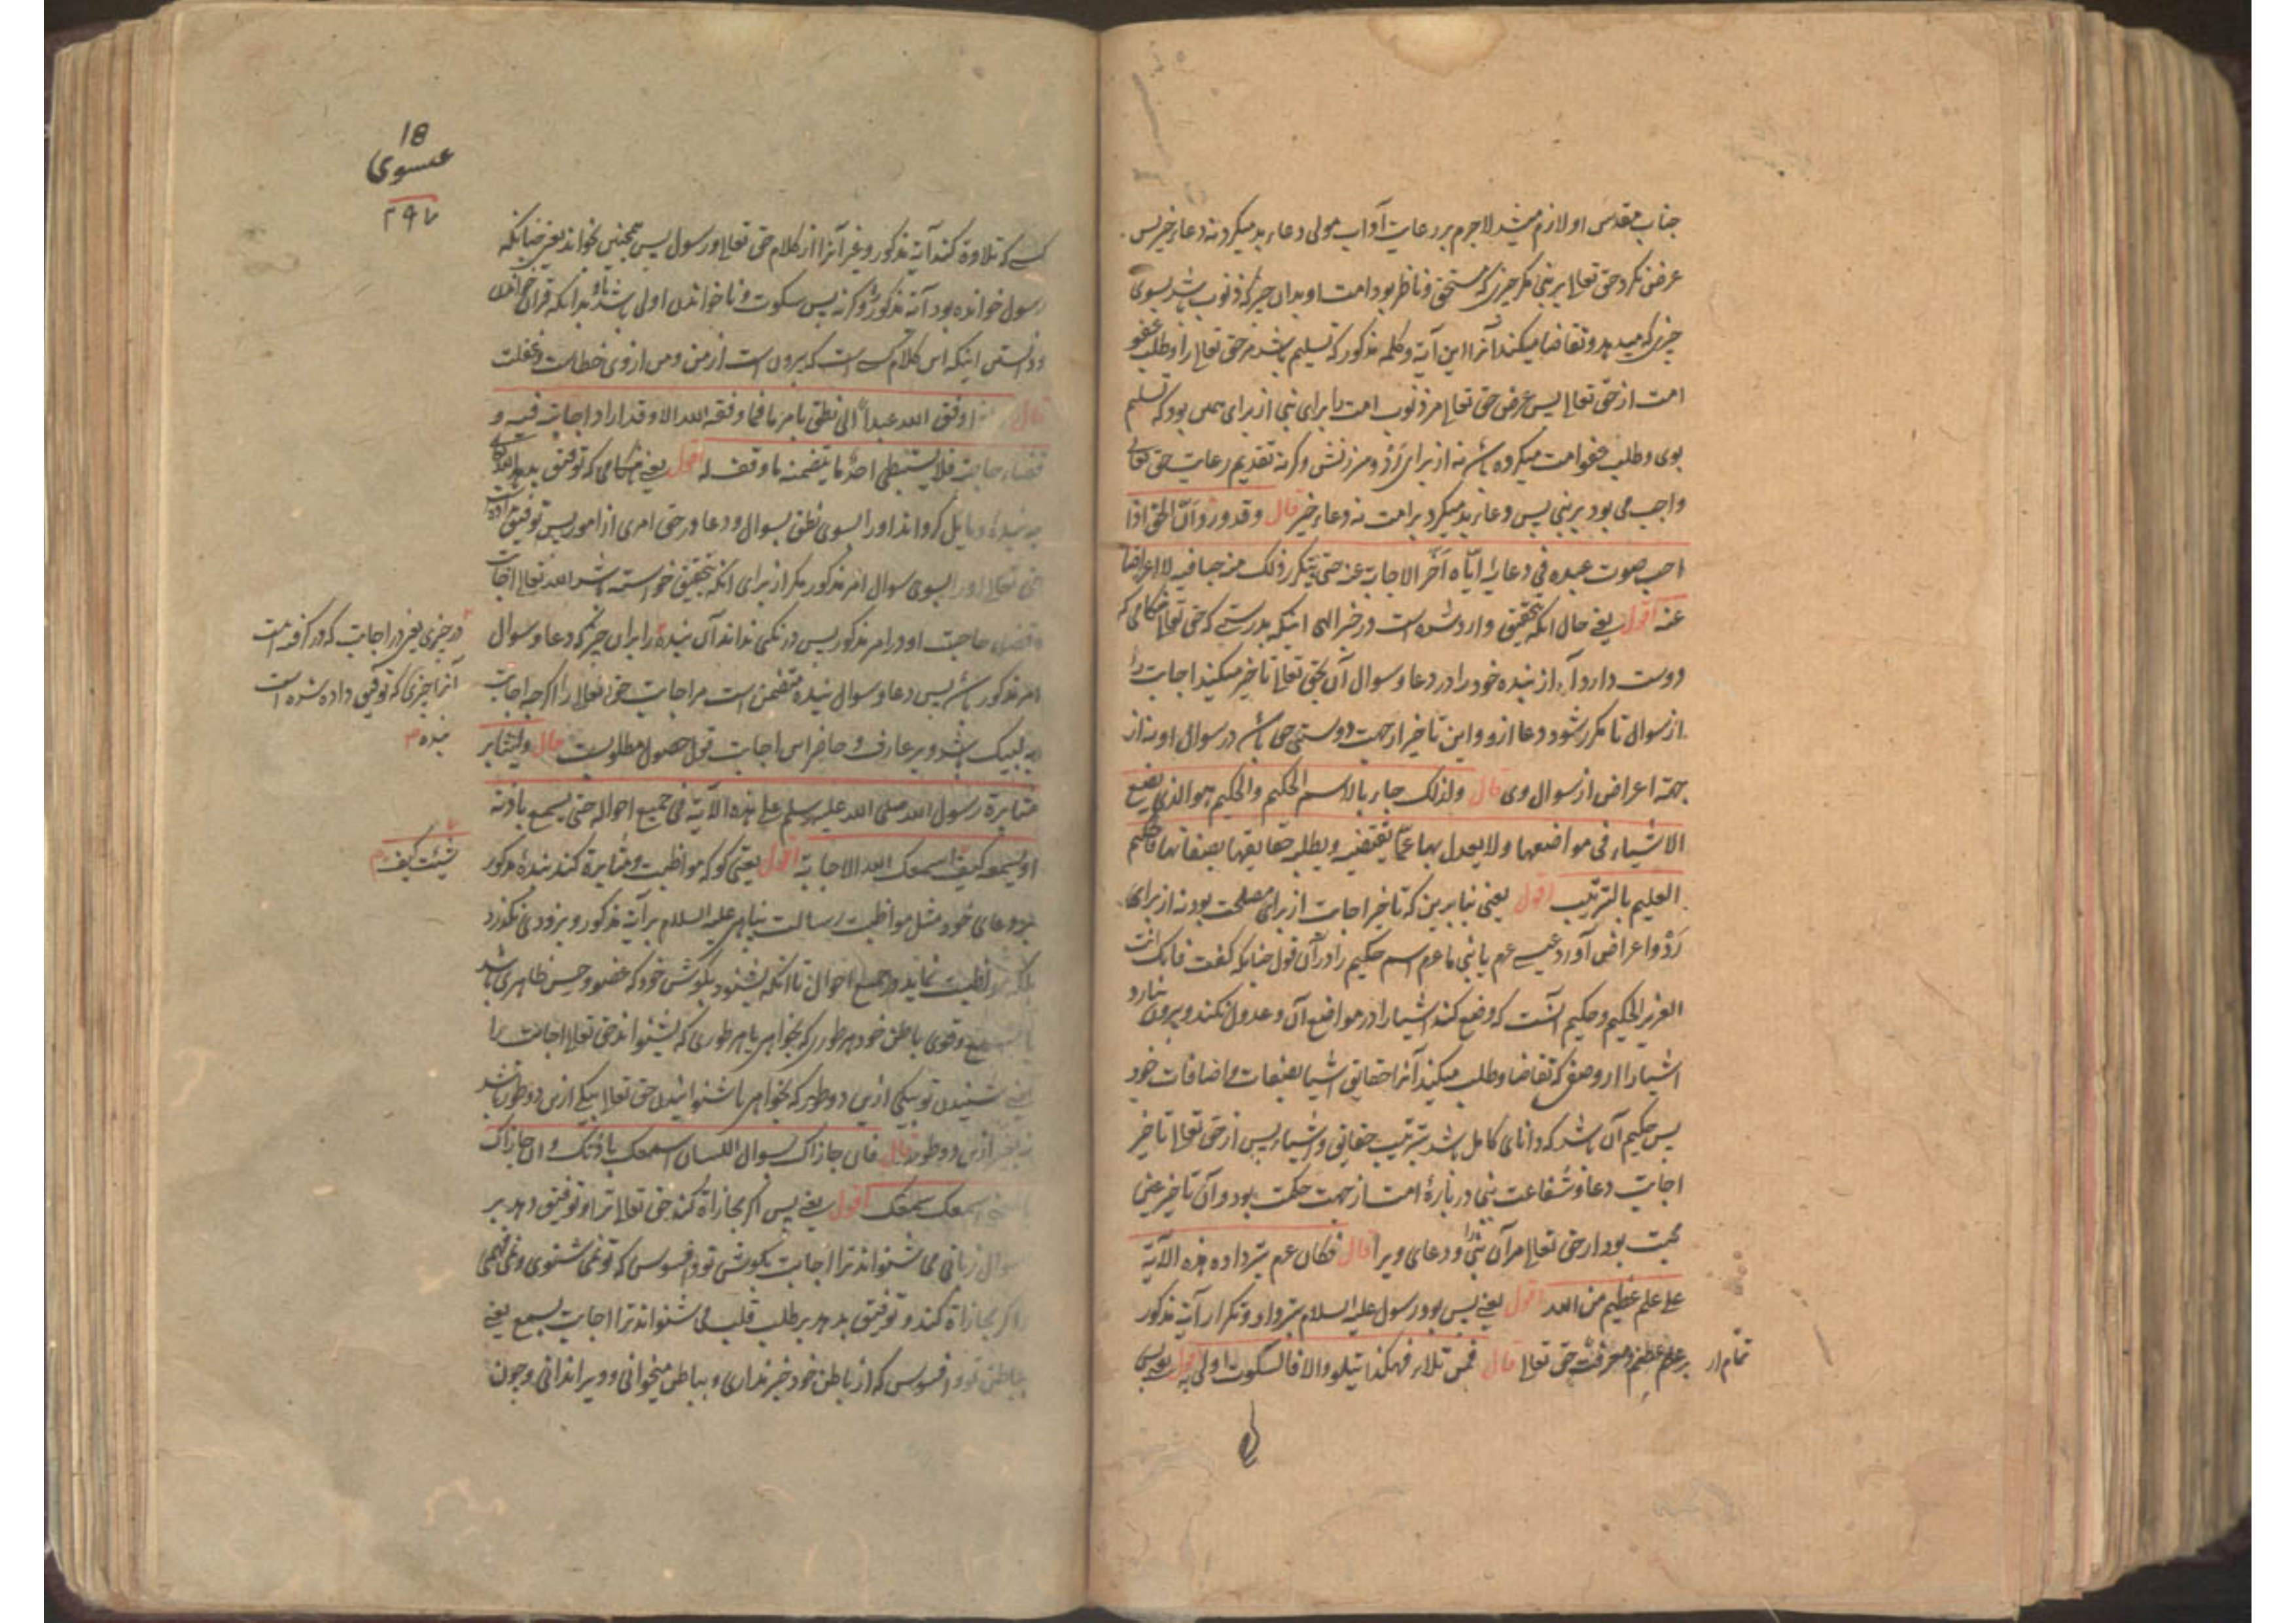 جناب مقدس او لازم میشد لاجرم بر رعایت آداب مولی دعاء بد میکرد نه دعاء خیر پس
عرض نکرد حق تعالی بر نبی مکر چیزی که مستحق و ناظر بود امت او بدان چیز که ذنوب باشد بسوی
چیزی که میدهد و تقاضا میکند آنرا این آیة و کلمه مذکور که تسلیم باشد مر حق تعالی را و طلب عفو
امت از حق تعالی پس عرض حق تعالی مر ذنوب امت را برای نبی از برای همین بود که تسلیم
بوی و طلب عفو امت میکرده باشد نه از برای رد و سرزنش و کرنه تقدیم رعایت حق تعالی
واجب می بود بر نبی پس دعاء بد میکرد بر امت نه دعاء خیر قال وقد ورد ان الحق اذا
احب صوت عبده فی دعائه ایاه اخر الاجابة عنه حتی یتکرر ذلک منه حبا فیه لا اعراضا
عنه اقول یعنی حال انکه بتحقیق وارد شده است در خبر الهی اینکه بدرستی که حق تعالی هنکامی که
دوست دارد آواز بنده خود را در دعا و سوال آن بحق تعالی تاخیر میکند اجابت را
از سوال تا مکرر شود دعا ازو و این تاخیر از جهت دوستی حق باشد در سوال او نه از
جهة اعراض از سوال وی قال ولذلک جاء بالاسم الحکیم والحکیم هو الذی یضع
الاشیاء فی مواضعها ولا یعدل بها عما تقتضیه ویطلبه حقایقها بصفاتها فالحکیم
العلیم بالترتیب اقول یعنی بنابرین که تاخیر اجابت از برای مصلحت بود نه از برای
رد و اعراض آورد عیسی عم یا نبی ما عم اسم حکیم را در آن قول چنانکه کفت فانک انت
العزیز الحکیم و حکیم آنست که وضع کند اشیا را در مواضع آن و عدول نکند و بیرون نیارد
اشیا را از وصفی که تقاضا و طلب میکند آنرا حقایق اشیا بصفات و اضافات خود
پس حکیم آن باشد که دانای کامل باشد بترتیب حقایق و اشیاء پس از حق تعالی تاخیر
اجابت دعا و شفاعت نبی در بارۀ امت از جهت حکمت بود و آن تاخیر عین
محبت بود از حق تعالی مر آن نبی را و دعای ویرا قال فکان عم بترداده هذه الآیة
علی علم عظیم من الله اقول یعنی پس بود رسول علیه السلام بترداد و تکرار آیة مذکور
بر علم عظیم و معرفت حق تعالی قال فمن تلا فهکذا یتلو والا فالسکوت اولی به اقول یعنی پس
تمام از
18
عیسوی
۲۹۷
کسی که تلاوة کند آیة مذکور و غیر آنرا از کلام حق تعالی و رسول پس همچنین بخواند یعنی چنانکه
رسول خوانده بود آیة مذکور و کرنه پس سکوت و ناخواندن اولی باشد باو بدانکه قرآن خواندن
و دانستن اینکه این کلام کسی است که بیرون است از من و من از وی خطاست و غفلت
قال اذا وفق الله عبدا الی نطق بامر ما فما وفقه الله الا وقد اراد اجابته فیه و
قضاء حاجته فلا یستبطی احد ما یتضمنه ما وفق له اقول یعنی هنکامی که توفیق بدهد الله تعالی
مر بندۀ و مایل کرداند او را بسوی نطق بسوال و دعا در حق امری از امور پس توفیق نداد
حق تعالی او را بسوی سوال امر مذکور مکر از برای انکه بتحقیق خواسته باشد الله تعالی اجابت
و قضاء حاجت او در امر مذکور پس درنکی نداند آن بنده را برای چیزی که دعا و سوال
امر مذکور باشد پس دعا و سوال بنده متضمن است مر اجابت حق تعالی را اکرچه اجابت
به لبیک باشد و بر عارف حاضر این اجابت قول حصول مطلوبست قال ولیثابر
مثابرة رسول الله صلی الله علیه وسلم علی هذه الآیة فی جمیع احواله حتی یسمع باذنه
او بسمعه کیف اسمعک الله الاجابة اقول یعنی کو که مواظبت و مثابرة کند بندۀ مذکور
بر دعای خود مثل مواظبت رسالت پناهی علیه السلام بر آیة مذکور و بزودی نکذرد
بلکه مواظبت نماید در جمیع احوال تا انکه بشنود بکوش خود که عضو و حس ظاهری باشد
یا بسمع و قوی باطن خود هر طوری که بخواهی یا هر طوری که بشنواند حق تعالی اجابت را
یعنی شنیدن تو بیکی ازین دو طور که بخواهی یا شنوانیدن حق تعالی بیکی ازین دو طور باشد
نه بغیر ازین دو طور قال فان جازاک بسوال اللسان اسمعک باذنک و ان جازاک
بالمعنی اسمعک بسمعک اقول یعنی پس اکر مجازاة کند حق تعالی ترا و توفیق دهد بر
سوال زبانی می شنواند ترا اجابت بکوش تو و افسوس که تو نمی شنوی و نمی فهمی
و اکر مجازاة کند و توفیق بدهد بر طلب قلب می شنواند ترا اجابت بسمع یعنی
بباطن تو و افسوس که از باطن خود خبر نداری و بباطن میخوانی و ویرا ندانی و چون
در چیزی یعنی در اجابت که در کرفته است
آنرا چیزی که توفیق داده شده است
بنده م
شئت کیف م